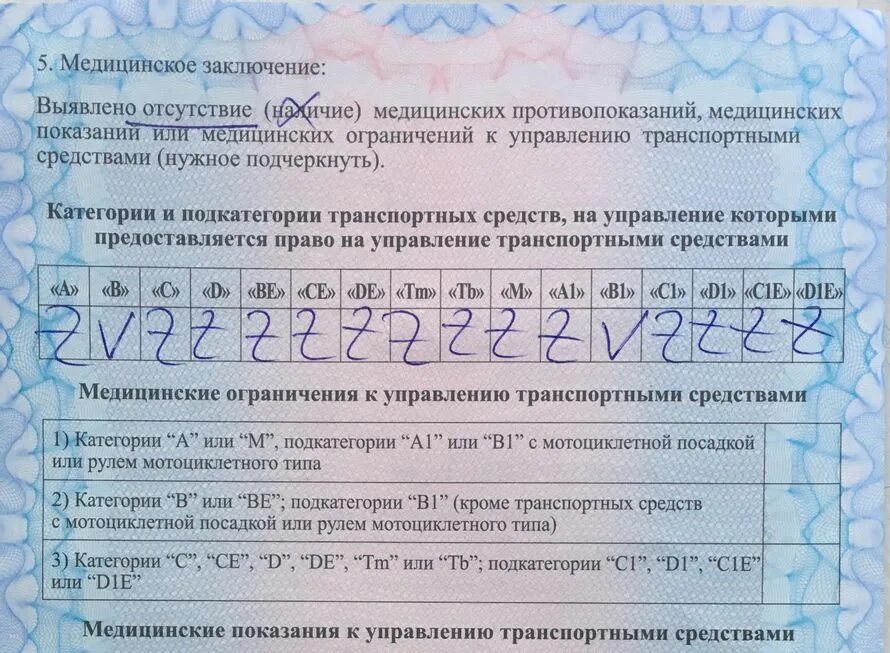 5. Медицинское заключение:
Выявлено отсутствие (наличие) медицинских противопоказаний, медицинских
показаний или медицинских ограничений к управлению транспортными
средствами (нужное подчеркнуть).
Категории и подкатегории транспортных средств, на управление которыми
предоставляется право на управление транспортными средствами
«A» «B» «C» «D» «BE» «CE» «DE» «Tm» «Tb» «M» «A1» «B1» «C1» «D1» «C1E» «D1E»
Z V Z Z Z Z Z Z Z Z Z V Z Z Z Z
Медицинские ограничения к управлению транспортными средствами
1) Категории “A” или “M”, подкатегории “A1” или “B1” с мотоциклетной посадкой
или рулем мотоциклетного типа
2) Категории “B” или “BE”; подкатегории “B1” (кроме транспортных средств
с мотоциклетной посадкой или рулем мотоциклетного типа)
3) Категории “C”, “CE”, “D”, “DE”, “Tm” или “Tb”; подкатегории “C1”, “D1”, “C1E”
или “D1E”
Медицинские показания к управлению транспортными средствами